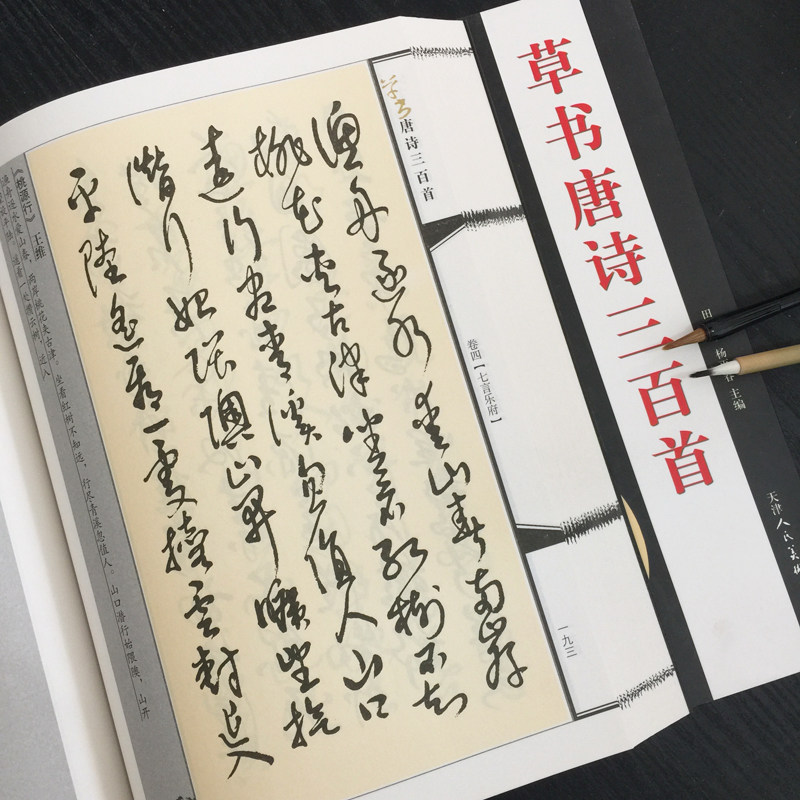 草书唐诗三百首
主编
天津人民美
草书唐诗三百首
卷四【七言乐府】
一九三
漁舟逐水愛山春兩岸
桃花夾古津坐看紅樹不知
遠行盡青溪忽值人山口
潛行始隈隩山開曠望旋
平陸遙看一處攢雲樹近入
《桃源行》 王维
渔舟逐水爱山春，两岸桃花夹古津。坐看红树不知远，行尽青溪忽值人。山口潜行始隈隩，山开
遥看一处攒云树，近入